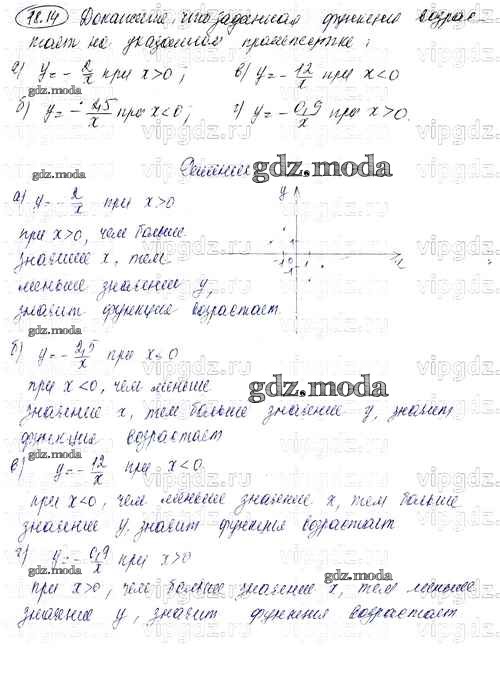 18.14 Докажите, что заданная функция возрас-
тает на указанном промежутке:
а) y = - 2/x при x>0; в) y = - 12/x при x<0
б) y = - 2,5/x при x<0; г) y = - 0,9/x при x>0.
Решение
gdz.moda
а) y = - 2/x при x>0
y
при x>0, чем больше
1
значение x, тем
-1 0 1 x
-1
меньше значение y,
значит функция возрастает
gdz.moda
б) y = - 2,5/x при x<0
gdz.moda
при x<0, чем меньше
gdz.moda
значение x, тем больше значение y, значит
функция возрастает
gdz.moda
в) y = - 12/x при x<0
при x<0, чем меньше значение x, тем больше
значение y, значит функция возрастает
gdz.moda
г) y = - 0,9/x при x>0
gdz.moda
при x>0, чем больше значение x, тем меньше
значение y, значит функция возрастает
vipgdz.ru